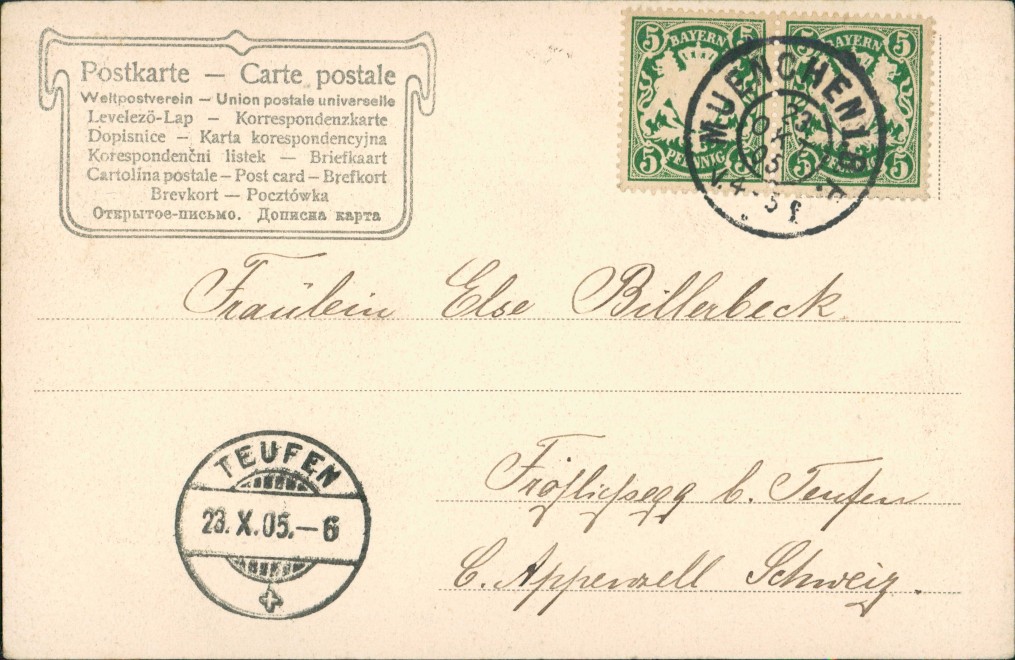 Postkarte — Carte postale
Weltpostverein — Union postale universelle
Levelezö-Lap — Korrespondenzkarte
Dopisnice — Karta korespondencyjna
Korespondenčni listek — Briefkaart
Cartolina postale — Post card — Brefkort
Brevkort — Pocztówka
Открытое-письмо. Дописна карта
5 BAYERN 5
5 PFENNIG 5
5 BAYERN 5
5 PFENNIG 5
MUENCHEN
23
OKT
05
V. 4-5
Fräulein Else Billerbeck
Fröhlichsegg b. Teufen
C. Appenzell Schweiz.
TEUFEN
23. X. 05. — 6